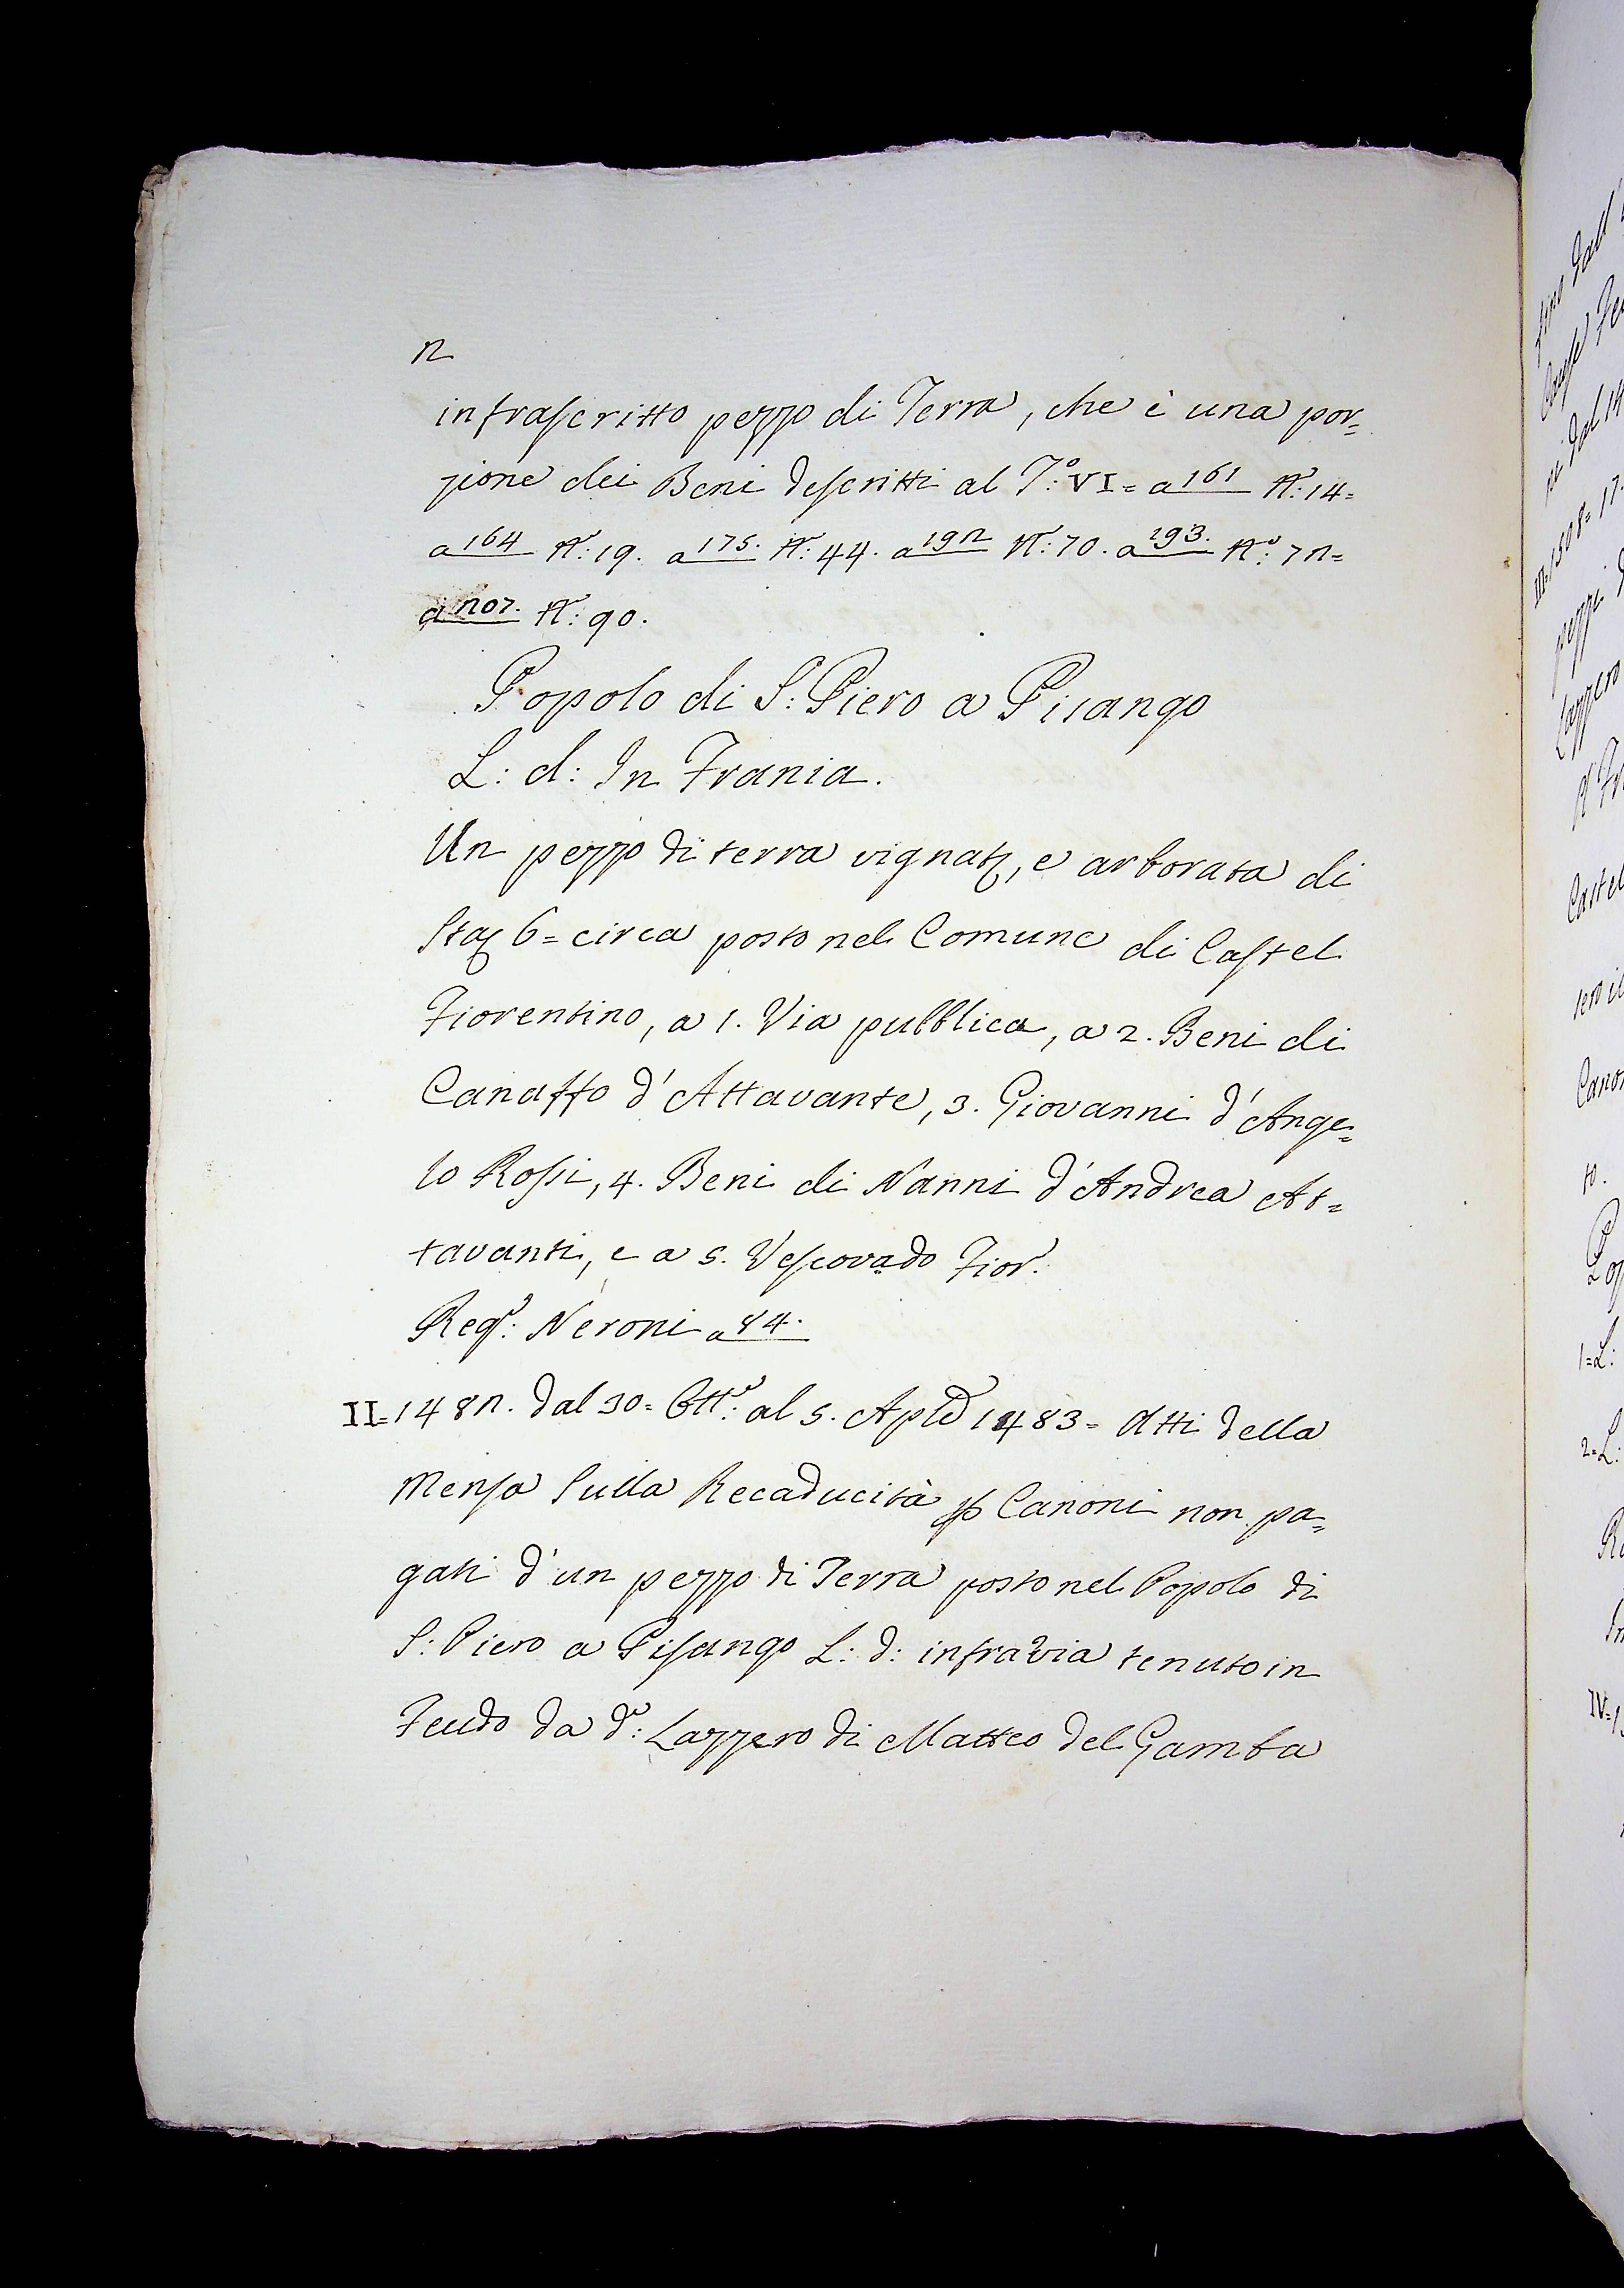 2
infrascritto pezzo di Terra, che è una por=
zione dei Beni descritti al T.º VI= a 161 N.º: 14=
a 164 N.º: 19. a 175. N.º: 44. a 192 N.º: 70. a 193. N.º: 72=
a 207. N.º: 90.
Popolo di S: Piero a Pisango
L: d: In Frania.
Un pezzo di terra vignata, e arborata di
Sta 6= circa posto nel Comune di Castel
Fiorentino, a 1. Via pubblica, a 2. Beni di
Canaffo d'Attavante, 3. Giovanni d'Ange=
lo Rossi, 4. Beni di Nanni d'Andrea At=
tavanti, e a 5. Vescovado Fior.
Reg.º: Neroni a 84.
II=1482. dal 30= Ott.e: al 5. Aple 1483= Atti della
Mensa Sulla Recaducità p Canoni non pa=
gati d'un pezzo di Terra posto nel Popolo di
S: Piero a Pisango L: d: infravia tenuto in
Feudo da d.º: Lazzero di Matteo del Gamba
fino dall'
ni dal 14
III=1508= 17.
pezzi
Lazzero
Castel
Canon
to.
1=L:
2=L:
IV=1